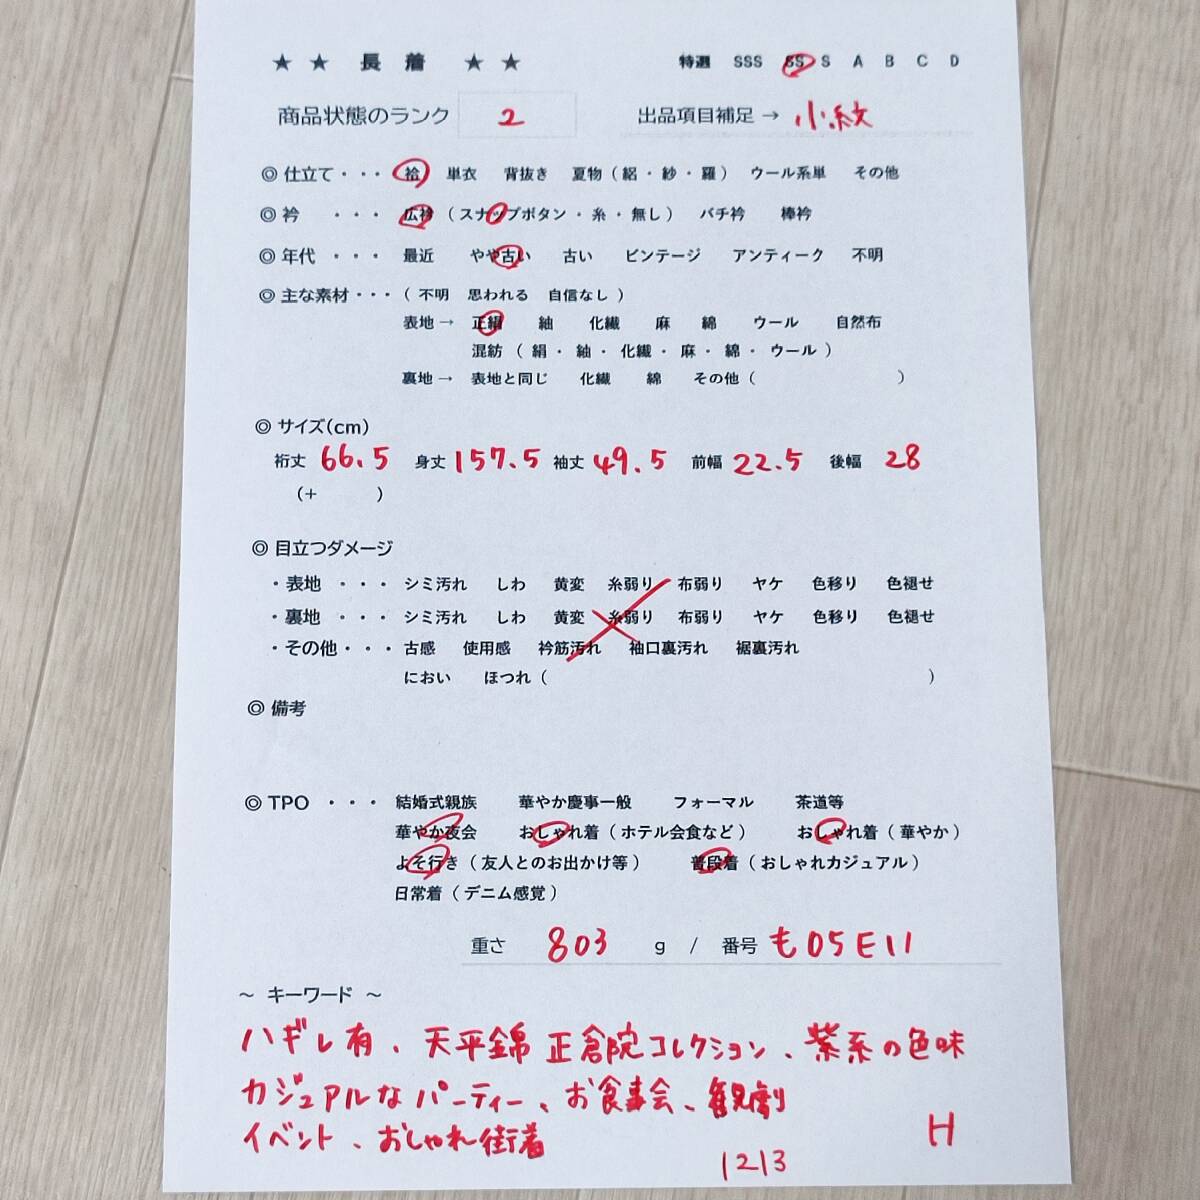 ★ ★ 長 着 ★ ★ 特選 SSS SS S A B C D
商品状態のランク 2 出品項目補足 → 小紋
◎ 仕立て ・・・ 袷 単衣 背抜き 夏物 ( 絽 ・ 紗 ・ 羅 ) ウール系単 その他
◎ 衿 ・・・ 広衿 ( スナップボタン ・ 糸 ・ 無し ) バチ衿 棒衿
◎ 年代 ・・・ 最近 やや古い 古い ビンテージ アンティーク 不明
◎ 主な素材 ・・・ ( 不明 思われる 自信なし )
表地 → 正絹 紬 化繊 麻 綿 ウール 自然布
混紡 ( 絹 ・ 紬 ・ 化繊 ・ 麻 ・ 綿 ・ ウール )
裏地 → 表地と同じ 化繊 綿 その他 ( )
◎ サイズ(cm)
裄丈 66.5 身丈 157.5 袖丈 49.5 前幅 22.5 後幅 28
(+ )
◎ 目立つダメージ
・表地 ・・・ シミ汚れ しわ 黄変 糸弱り 布弱り ヤケ 色移り 色褪せ
・裏地 ・・・ シミ汚れ しわ 黄変 糸弱り 布弱り ヤケ 色移り 色褪せ
・その他 ・・・ 古感 使用感 衿筋汚れ 袖口裏汚れ 裾裏汚れ
におい ほつれ ( )
◎ 備考
◎ TPO ・・・ 結婚式親族 華やか慶事一般 フォーマル 茶道等
華やか夜会 おしゃれ着 ( ホテル会食など ) おしゃれ着 ( 華やか )
よそ行き ( 友人とのお出かけ等 ) 普段着 ( おしゃれカジュアル )
日常着 ( デニム感覚 )
重さ 803 g / 番号 も05E11
～ キーワード ～
ハギレ有、天平錦 正倉院コレクション、紫系の色味
カジュアルなパーティー、お食事会、観劇
イベント、おしゃれ街着
H
1213